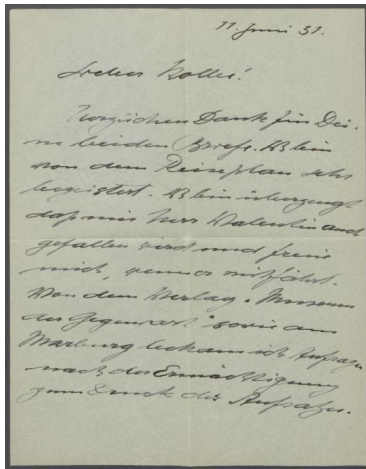 11. Juni 31.
Lieber Kolle!
Herzlichen Dank für Dei-
ne beiden Briefe. Ich bin
von dem Reiseplan sehr
begeistert. Ich bin überzeugt
daß mir Herr Valentin auch
gefallen wird und freue
mich, wenn er mitfährt.
Von dem Verlag "Museum
der Gegenwart" sowie aus
Marburg bekam ich Anfragen
nach der Ermächtigung
zum Druck des Aufsatzes.